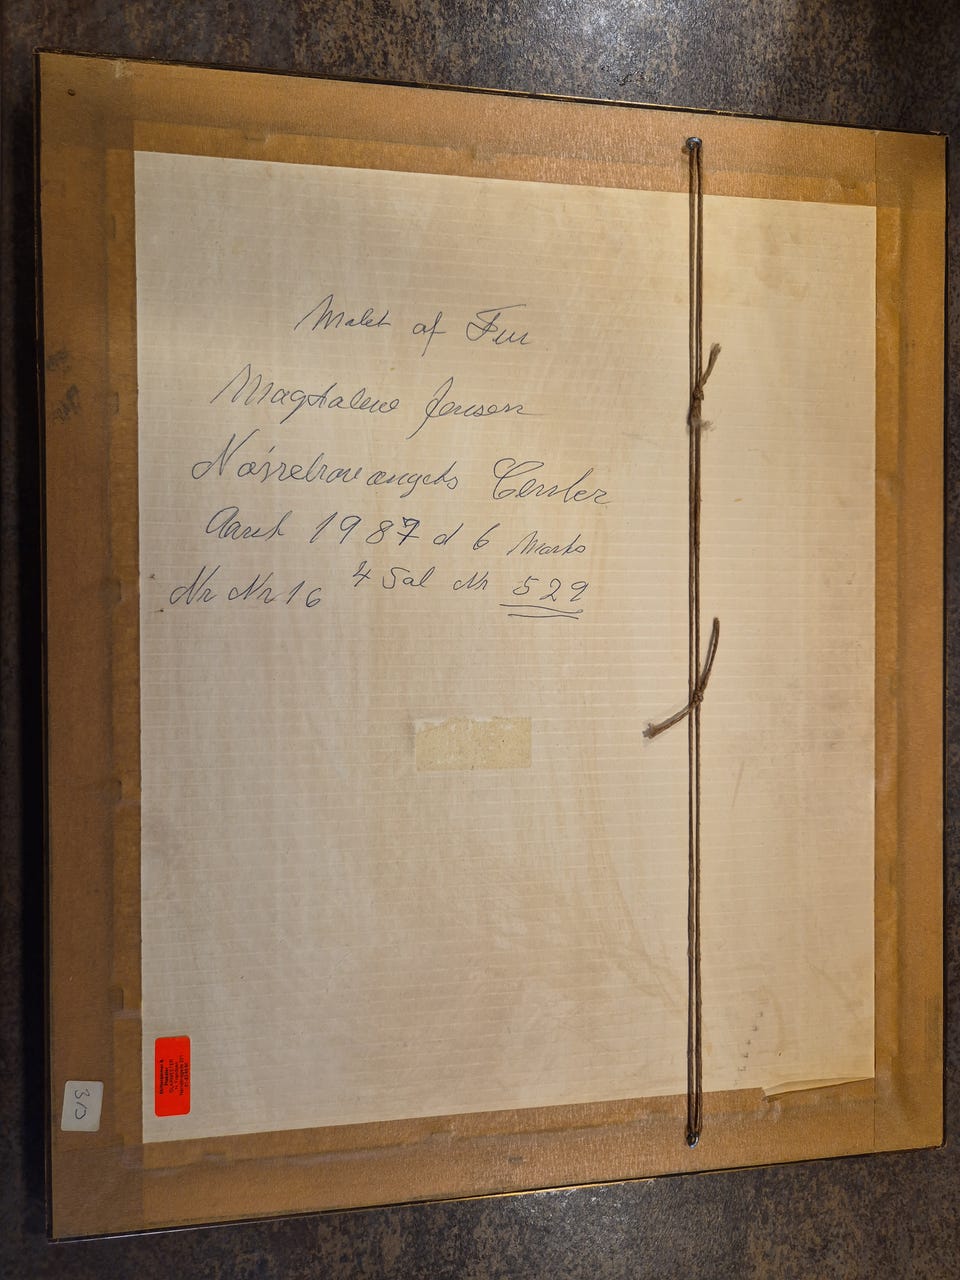 Malet af Fru
Magdalene Jensen
Center
Aaret 1987 d 6 Marts
Nr Nr 16 4 Sal Nr 529
GLARMESTER
3/3